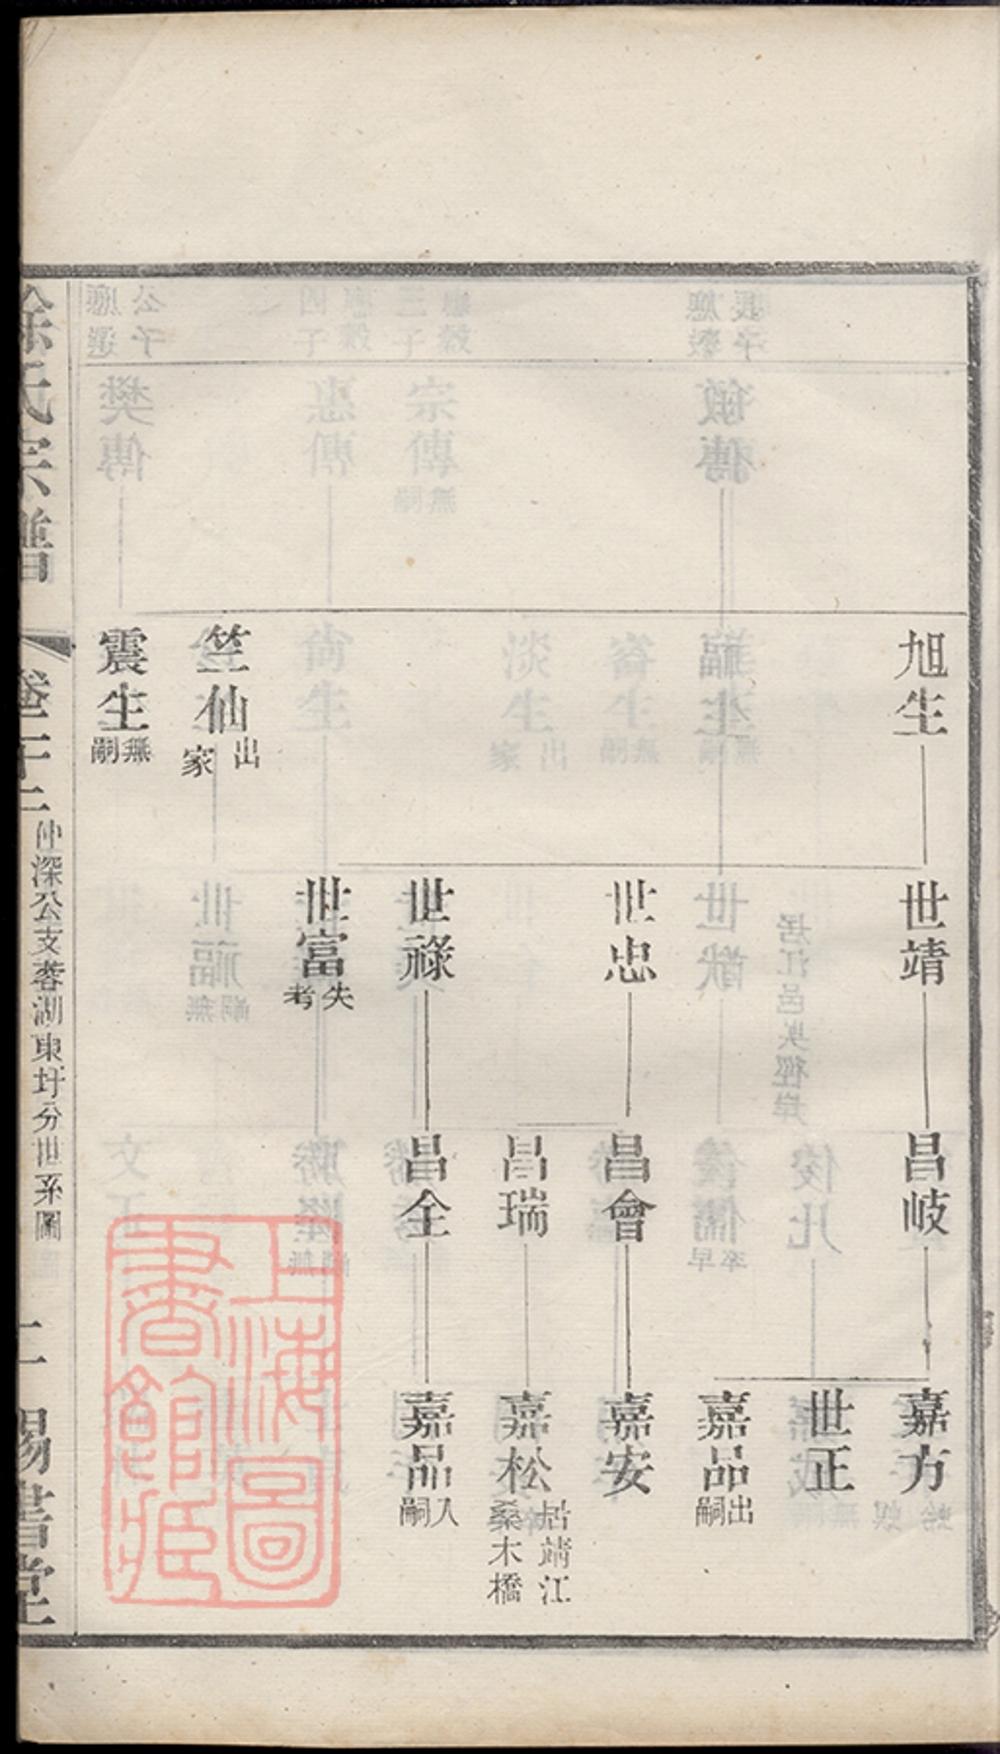 旭生
竺仙 出家
震生 無嗣
世靖
世忠
世祿
世富 失考
昌岐
昌會
昌瑞
昌全
嘉方
世正
嘉品 出嗣
嘉安
嘉松 居靖江桑木橋
嘉品 入嗣
徐氏宗譜
仲深公支蓉湖東圩分世系圖
二
錫書堂
上海圖書館藏